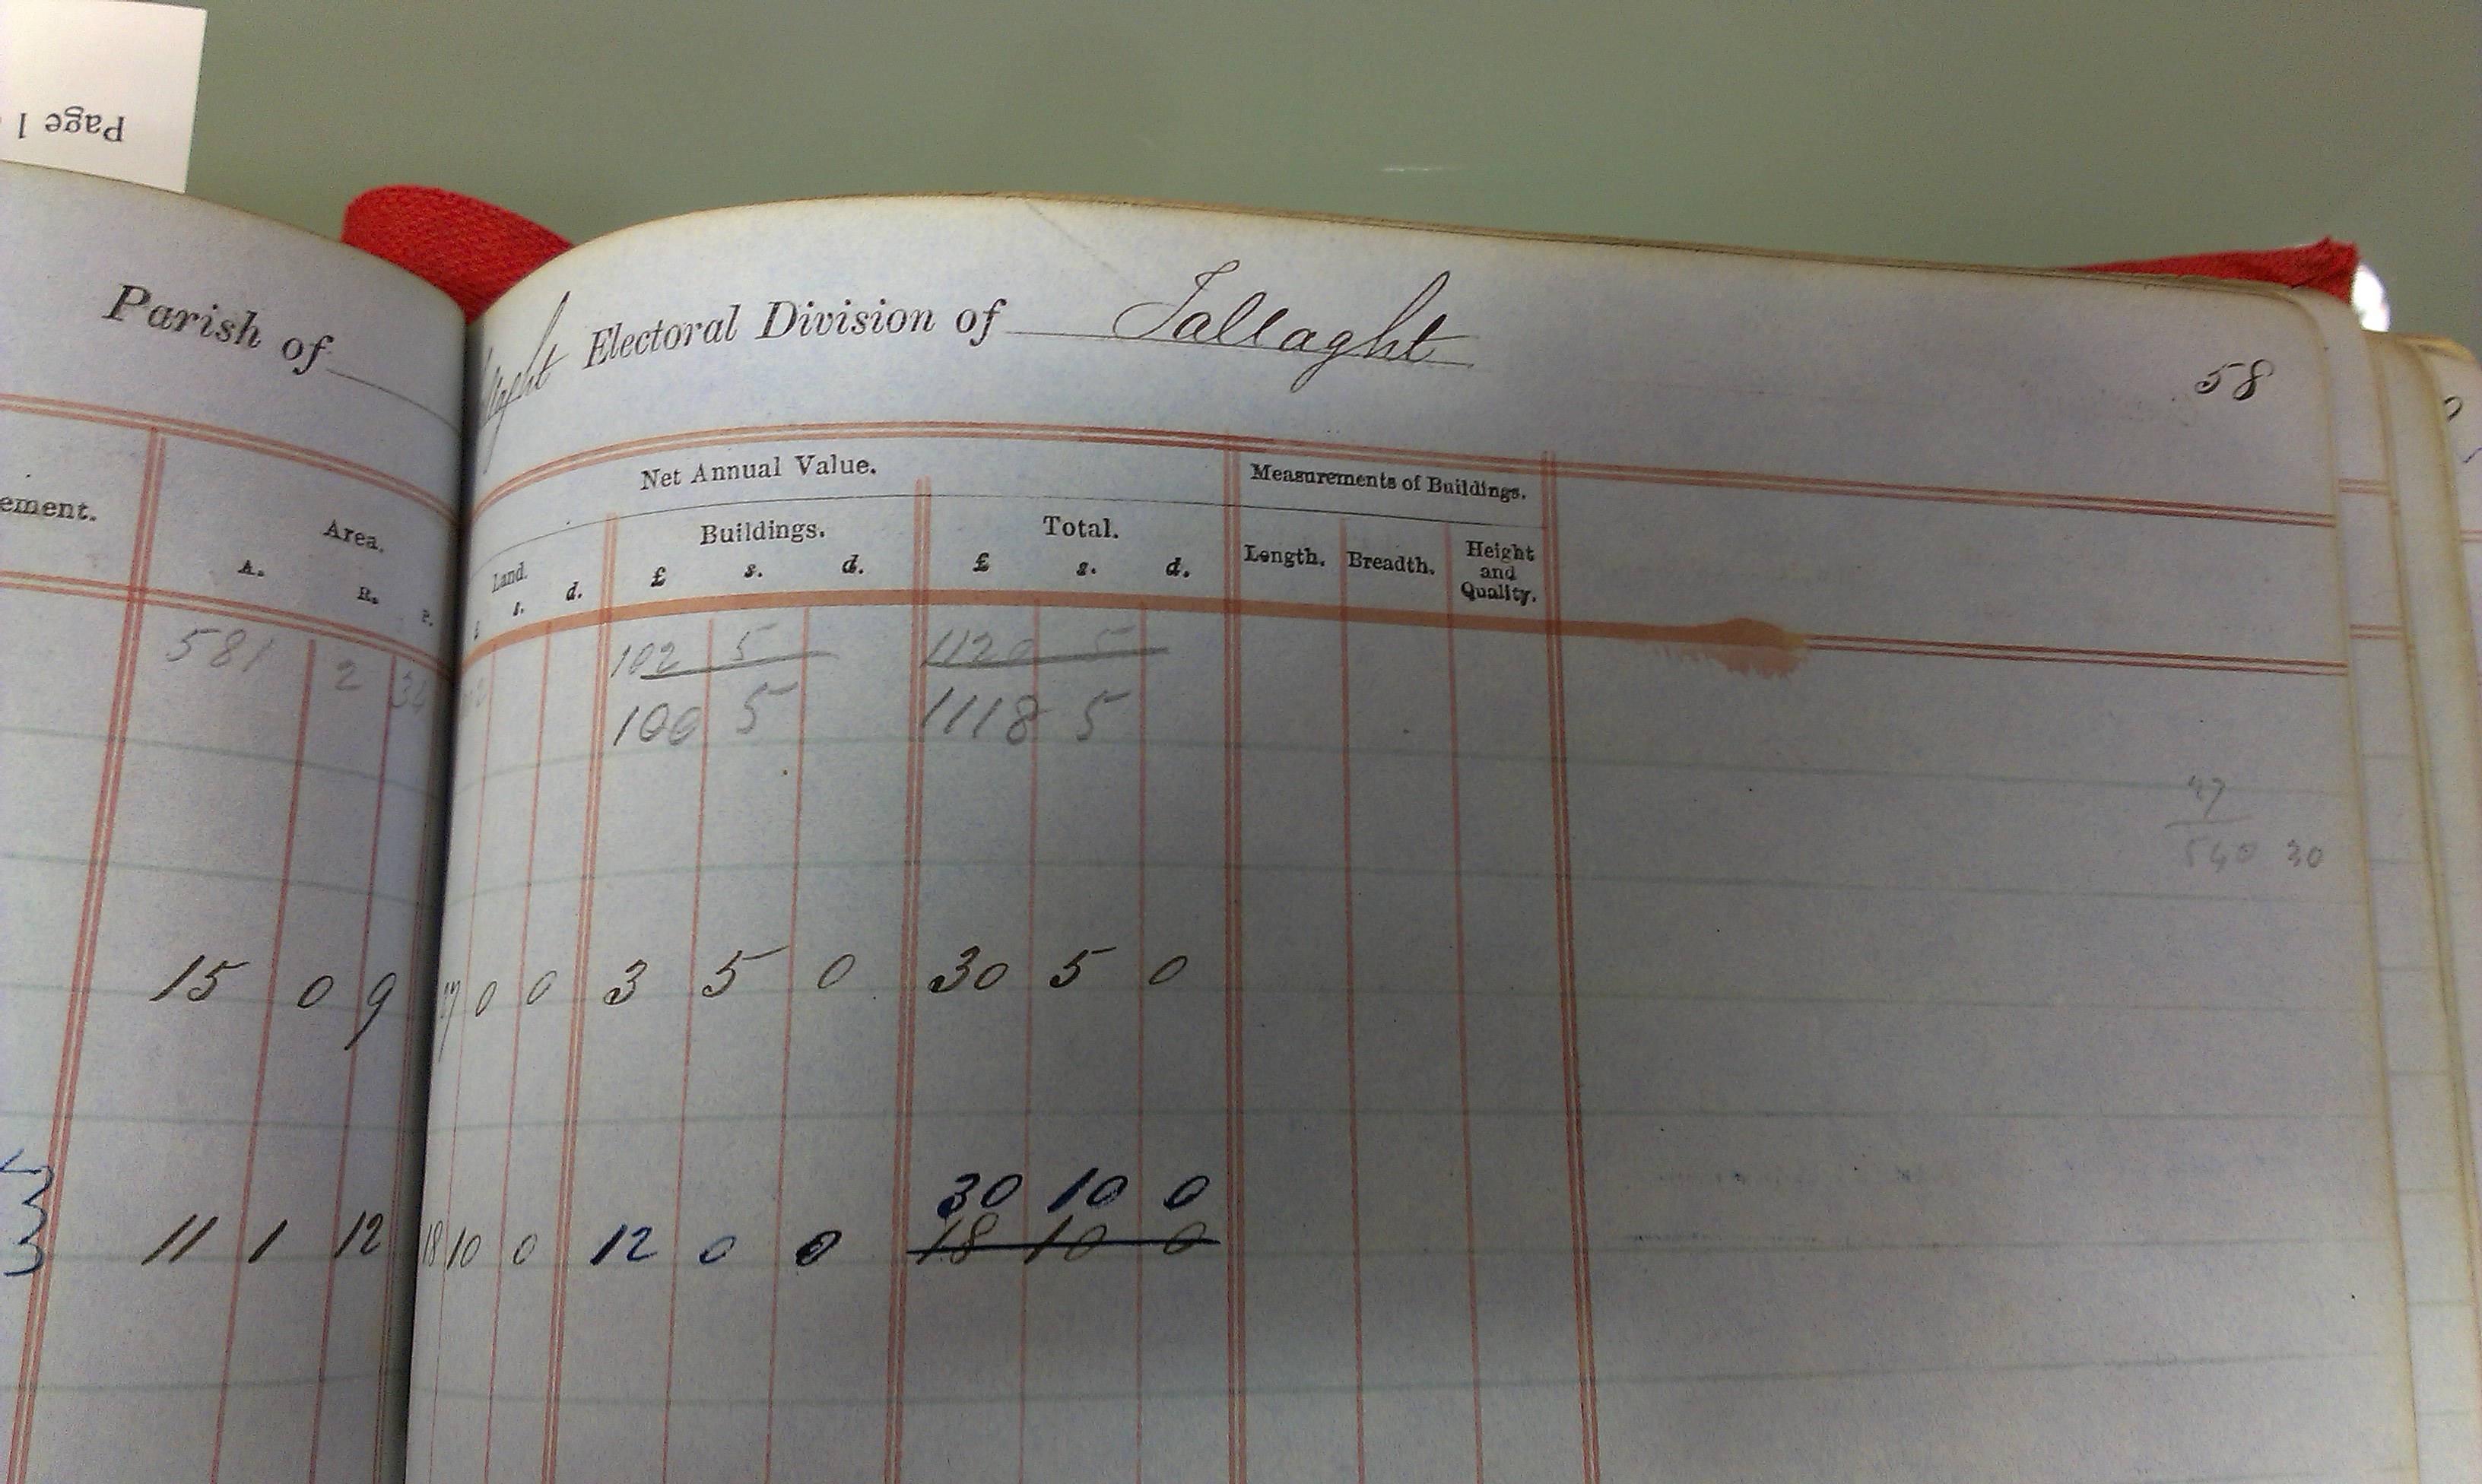 Page 1
Parish of
llaght Electoral Division of Tallaght
58
ement. Area.
A. R. P.
Net Annual Value. Measurements of Buildings.
Land. Buildings. Total. Length. Breadth. Height and Quality.
s. d. £ s. d. £ s. d.
581 2 102 5 1120 5
100 5 1118 5
27
540 30
15 0 9 27 0 0 3 5 0 30 5 0
30 10 0
11 1 12 18 10 0 12 0 0 18 10 0